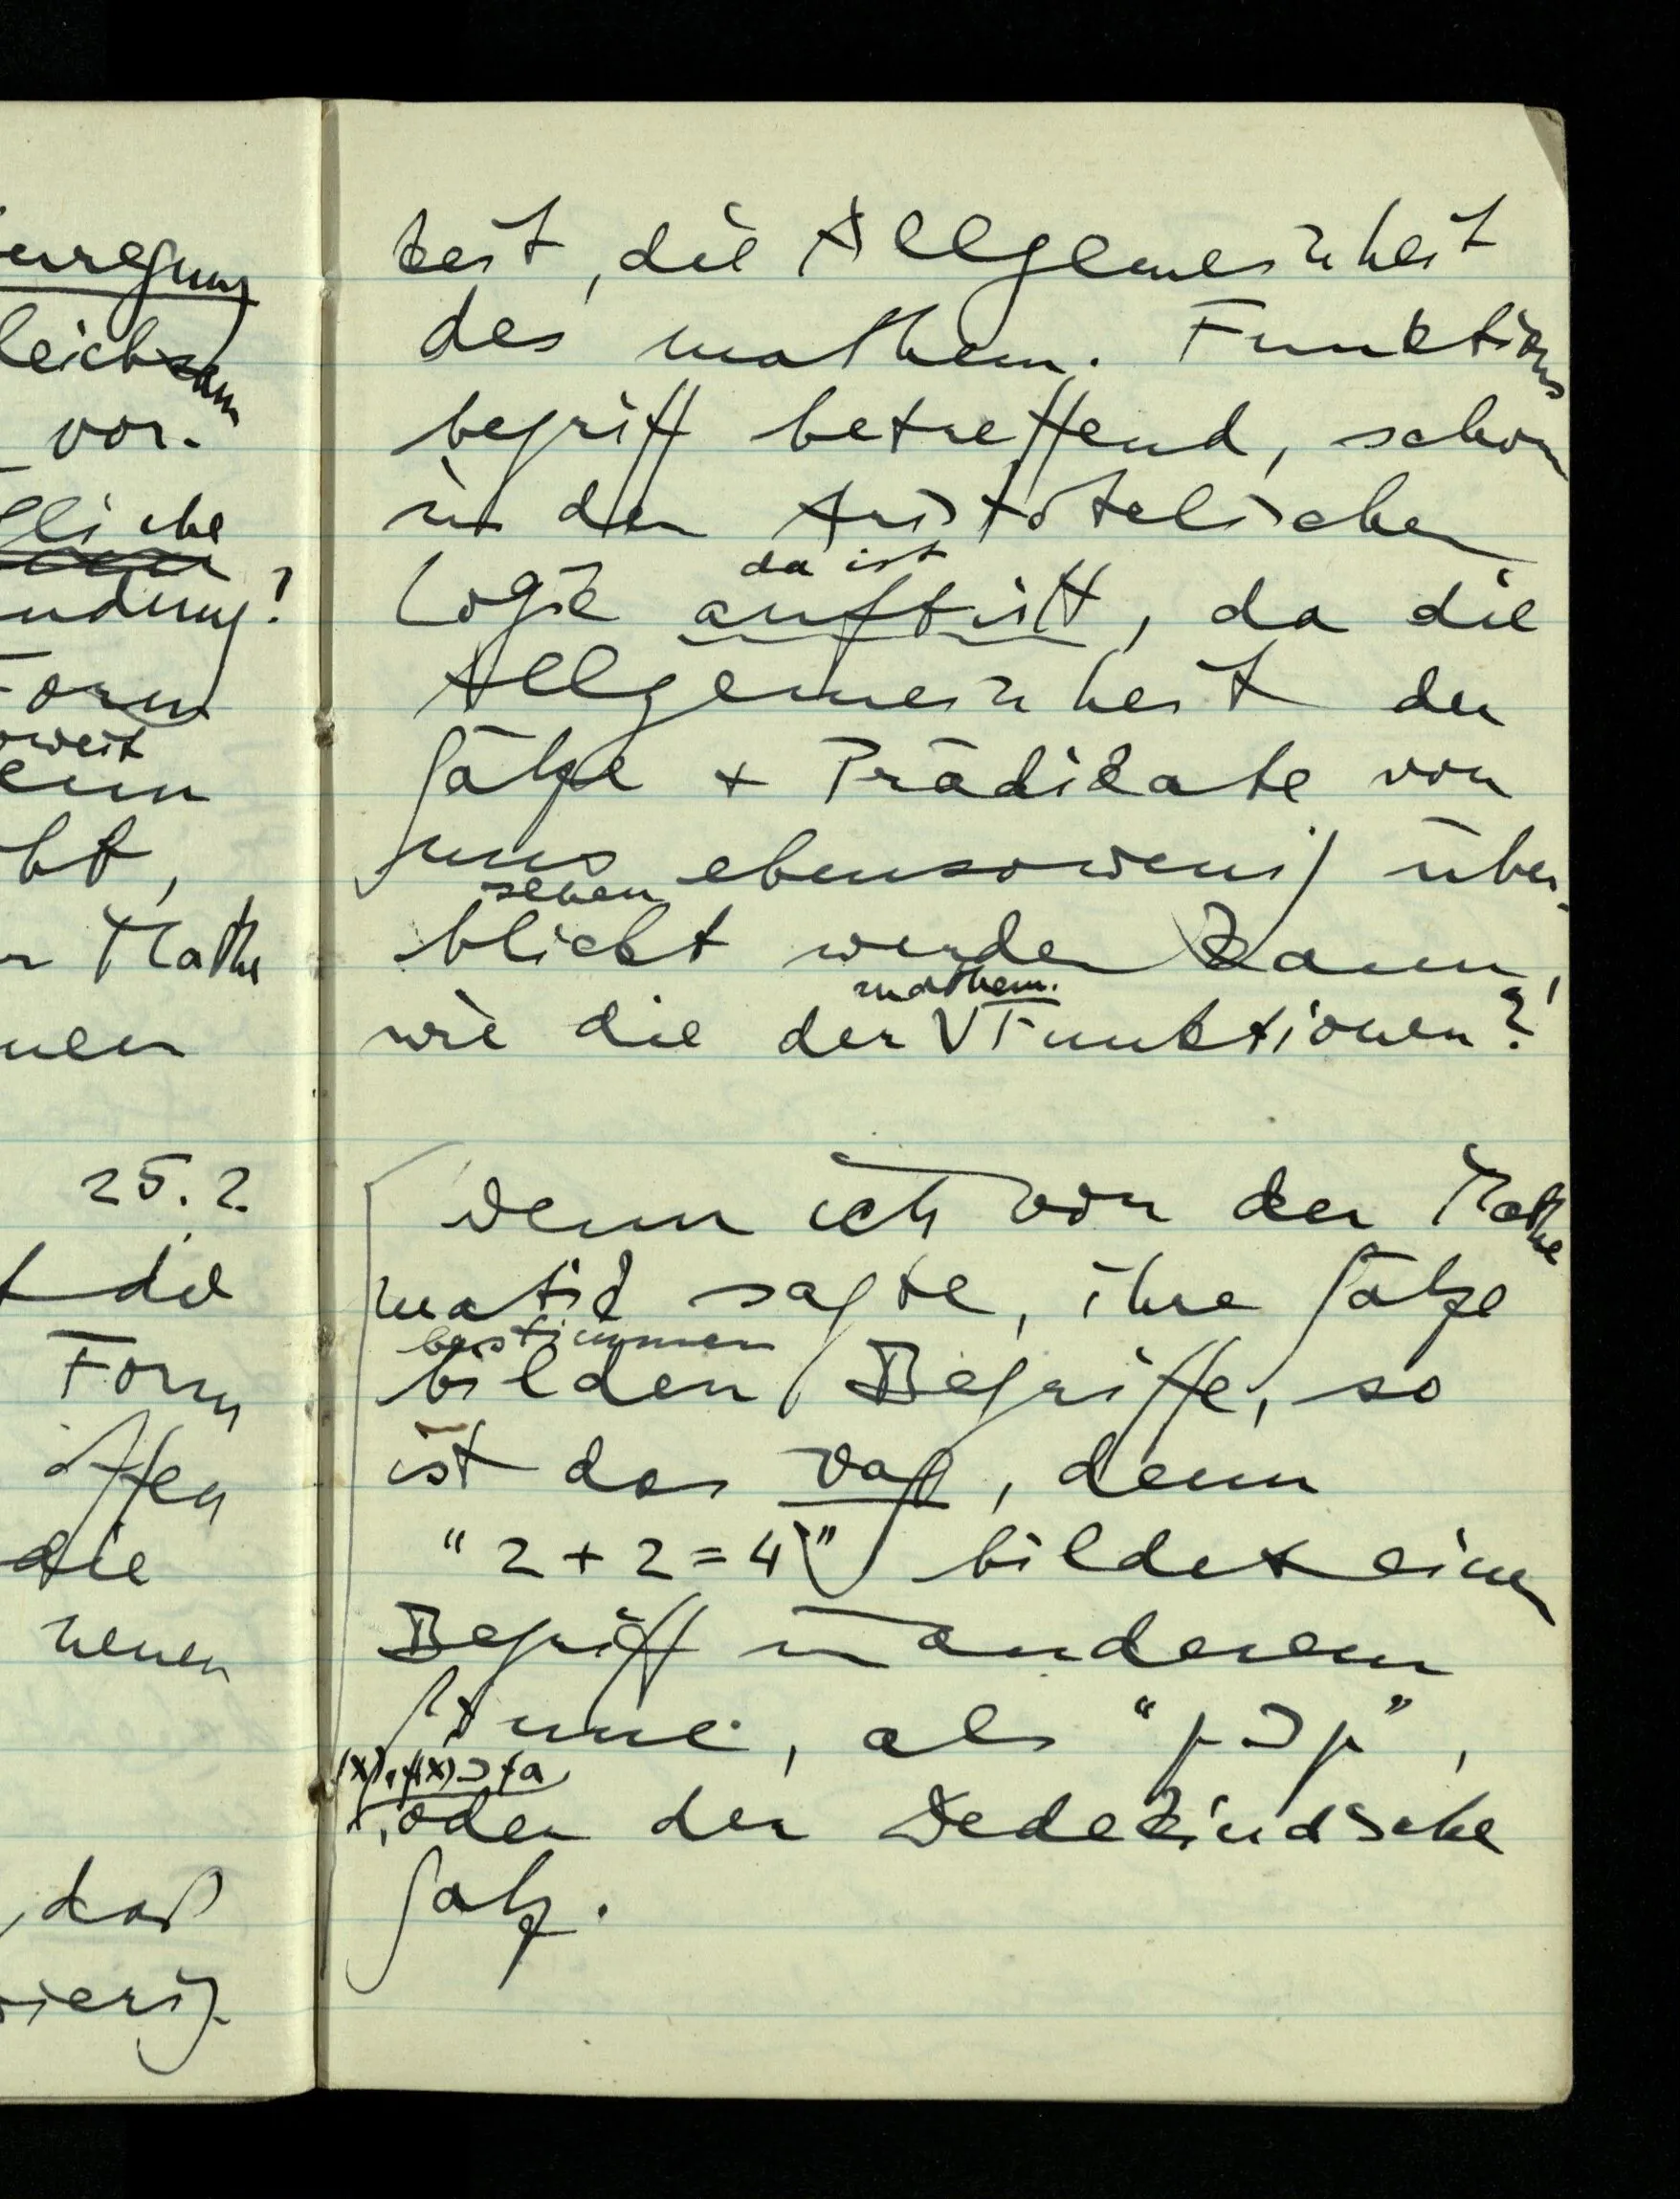 enregung
leichsam
vor.
gliche
ndung?
Form
oweit
enn
bt,
r Mathe
nen
25.2.
t die
Form
iffen
die
neuen
, daß
wierig
keit, die Allgemeinheit
des mathem. Funktions
begriff betreffend, schon
in der Aristotelischen
da ist
Logik auftritt, da die
Allgemeinheit der
Sätze + Prädikate von
uns ebensowenig über-
sehen
blickt werden kann,
mathem.
wie die der Funktionen?
Wenn ich von der Mathe
matik sagte, ihre Sätze
bestimmen
bilden Begriffe, so
ist das vag, denn
“2+2=4” bildet einen
Begriff in anderem
Sinne, als “p⊃p”,
(x).f(x)⊃fa
, oder der Dedekindsche
Satz.